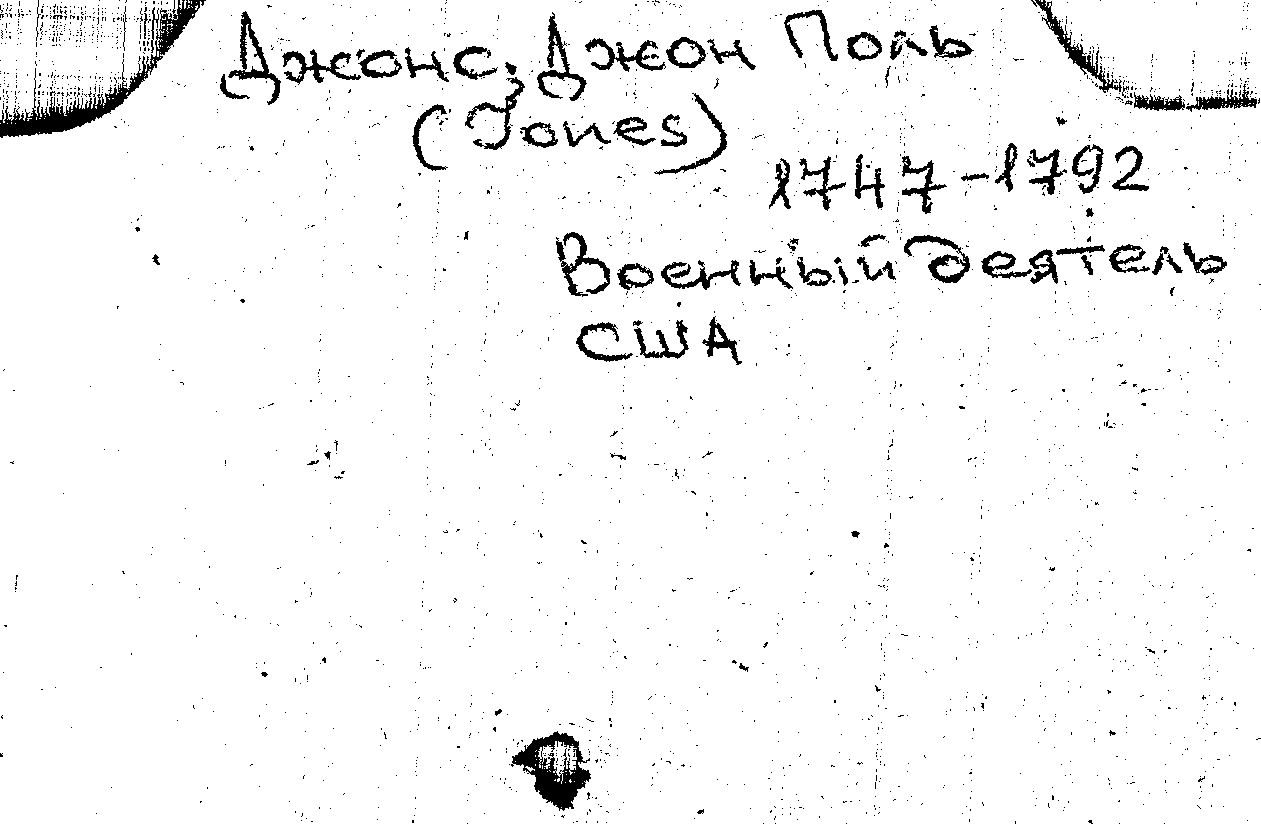 Джонс, Джон Поль
(Jones)
1747-1792
Военный деятель
США